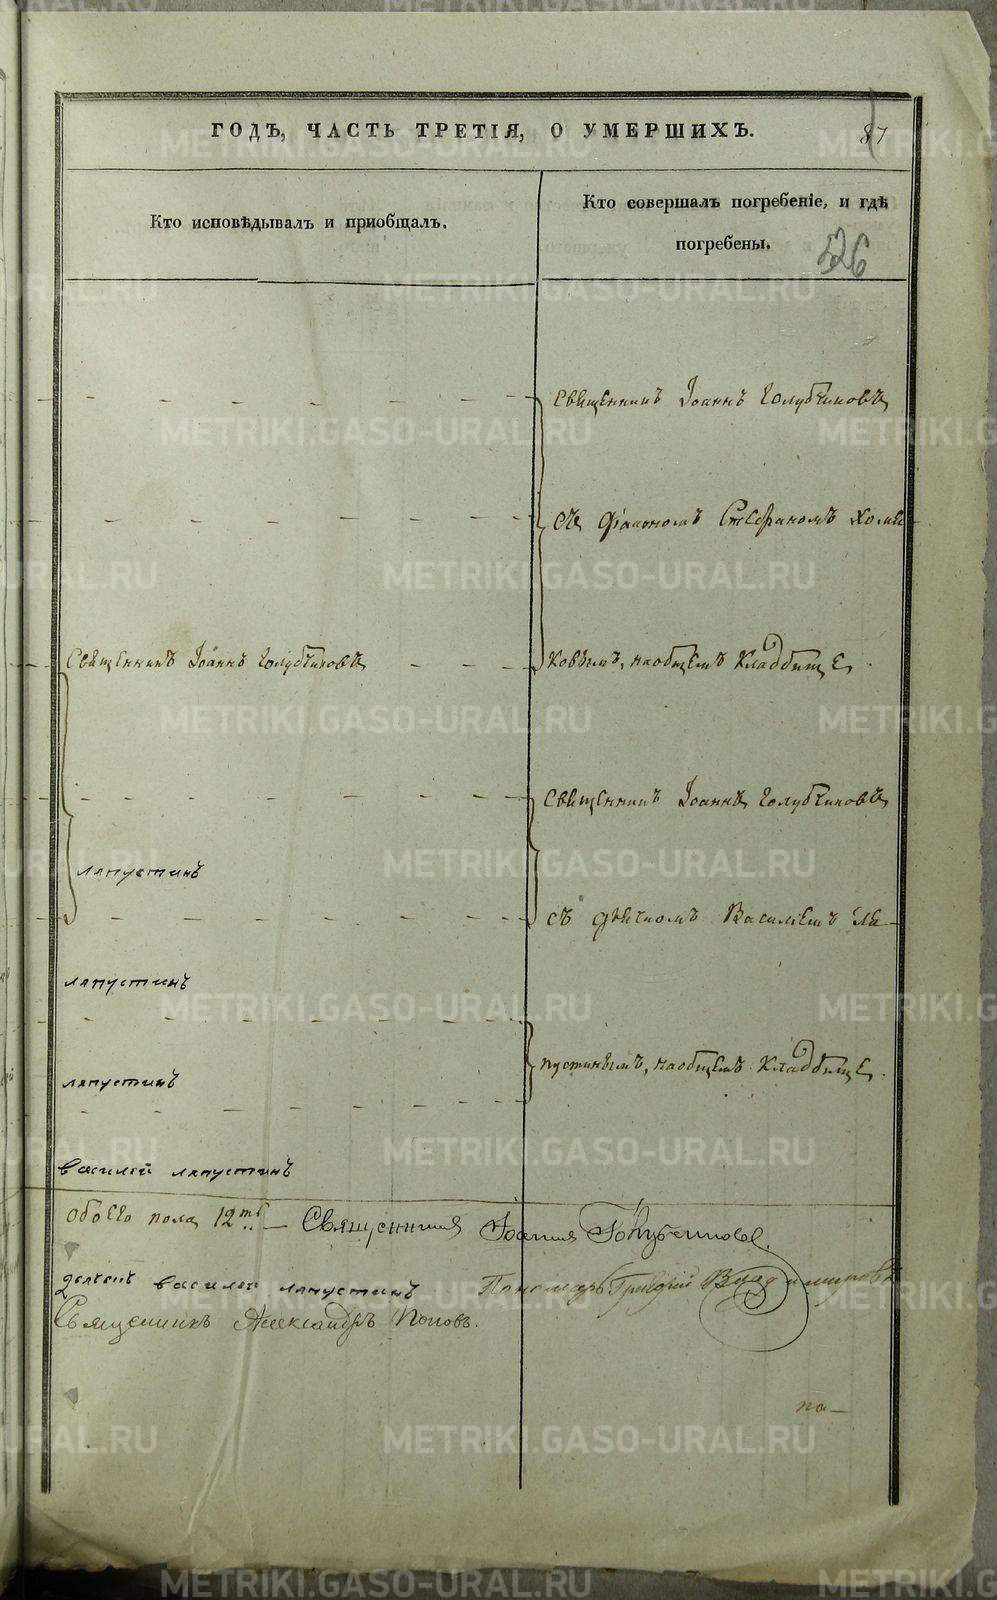 ГОДЪ, ЧАСТЬ ТРЕТІЯ, О УМЕРШИХЪ.
87
Кто исповѣдывалъ и пріобщалъ.
Кто совершалъ погребеніе, и гдѣ
погребены.
526
Священникъ Іоаннъ Голубчиковъ
съ Діакономъ Стефаномъ Холмо-
Священникъ Іоаннъ Голубчиковъ
ковымъ, на общемъ кладбищѣ.
Священникъ Іоаннъ Голубчиковъ
ляпустинъ
съ дьячкомъ Василіемъ Ля-
ляпустинъ
пустинымъ, на общемъ кладбищѣ.
ляпустинъ
василей ляпустинъ
обоего пола 12ть — Священникъ Іоаннъ Голубчиковъ.
дьячекъ василей ляпустинъ
Пономарь Григорій Владимировъ
Священникъ Александръ Поповъ.
по-
METRIKI.GASO-URAL.RU